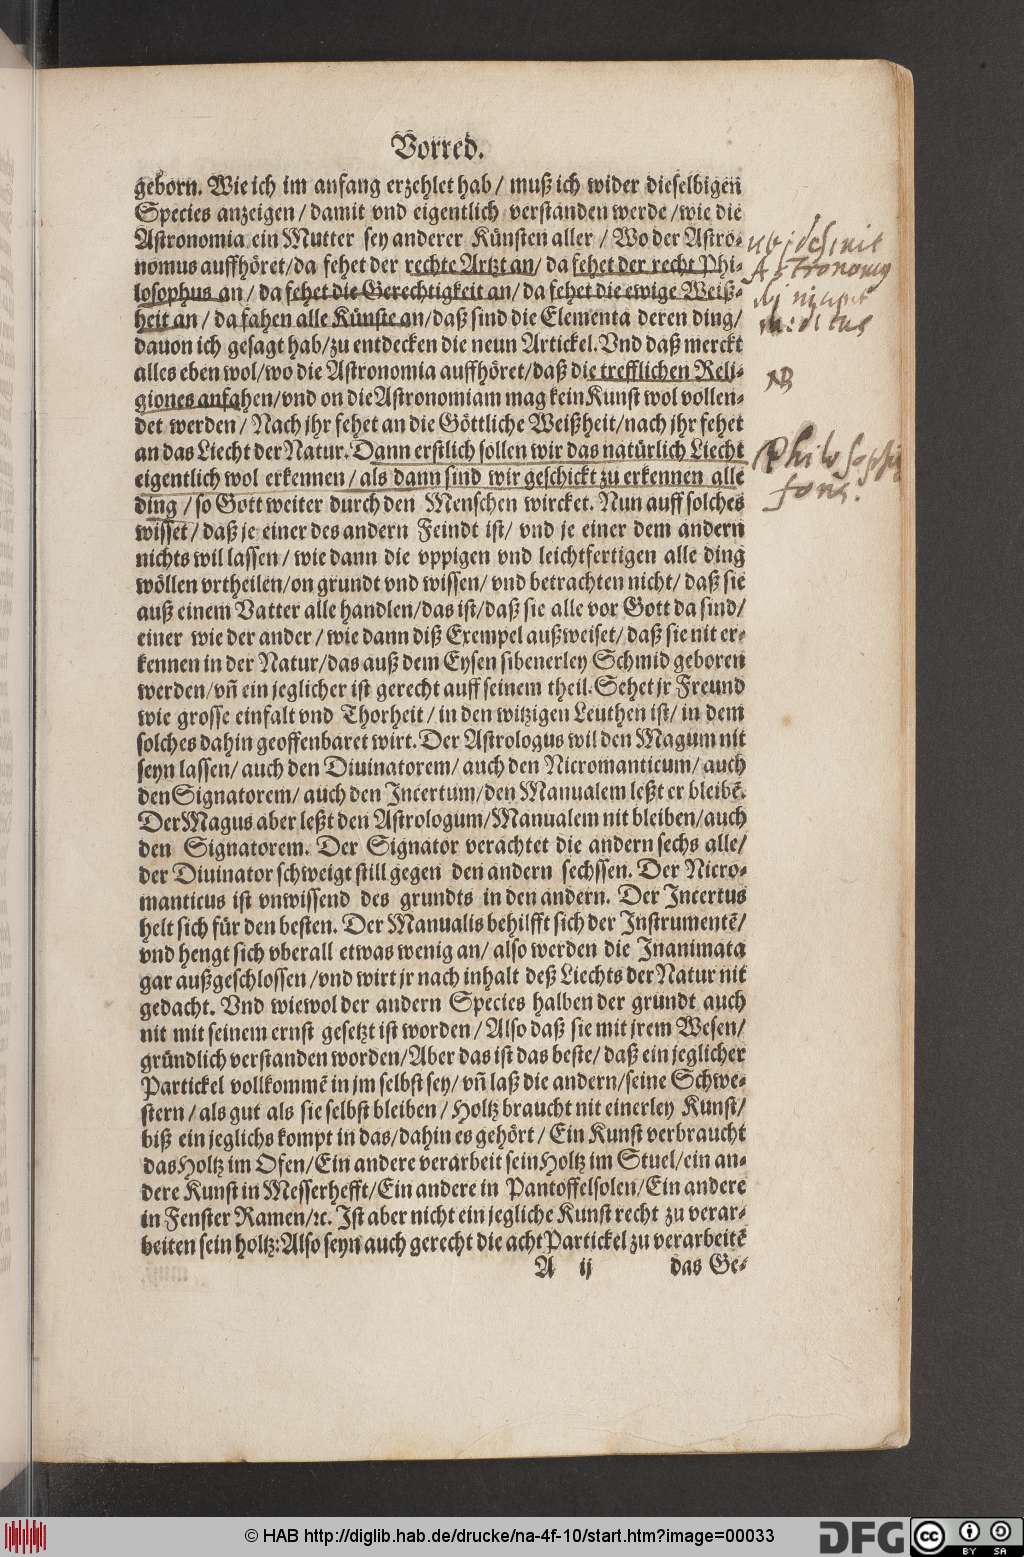 Vorred.
geborn. Wie ich im anfang erzehlet hab / muß ich wider dieselbigen
Species anzeigen / damit vnd eigentlich verstanden werde / wie die
Astronomia ein Mutter sey anderer Künsten aller / Wo der Astro-
nomus auffhöret/da fehet der rechte Artzt an/ da fehet der recht Phi-
losophus an / da fehet die Gerechtigkeit an/ da fehet die ewige Weiß-
heit an / da fahen alle Künste an/daß sind die Elementa deren ding/
dauon ich gesagt hab/zu entdecken die neun Artickel. Vnd daß merckt
alles eben wol/wo die Astronomia auffhöret/daß die trefflichen Reli-
giones anfahen/vnd on die Astronomiam mag kein Kunst wol vollen-
det werden / Nach jhr fehet an die Göttliche Weißheit/nach jhr fehet
an das Liecht der Natur. Dann erstlich sollen wir das natürlich Liecht
eigentlich wol erkennen / als dann sind wir geschickt zu erkennen alle
ding / so Gott weiter durch den Menschen wircket. Nun auff solches
wisset / daß je einer des andern Feindt ist/ vnd je einer dem andern
nichts wil lassen / wie dann die vppigen vnd leichtfertigen alle ding
wöllen vrtheilen/on grundt vnd wissen/ vnd betrachten nicht/ daß sie
auß einem Vatter alle handlen/das ist/daß sie alle vor Gott da sind/
einer wie der ander / wie dann diß Exempel außweiset/ daß sie nit er-
kennen in der Natur/das auß dem Eysen sibenerley Schmid geboren
werden/vn̄ ein jeglicher ist gerecht auff seinem theil. Sehet jr Freund
wie grosse einfalt vnd Thorheit / in den witzigen Leuthen ist/ in dem
solches dahin geoffenbaret wirt. Der Astrologus wil den Magum nit
seyn lassen/ auch den Diuinatorem/ auch den Nicromanticum/ auch
den Signatorem/ auch den Incertum/den Manualem leßt er bleibē.
Der Magus aber leßt den Astrologum/Manualem nit bleiben/auch
den Signatorem. Der Signator verachtet die andern sechs alle/
der Diuinator schweigt still gegen den andern sechssen. Der Nicro-
manticus ist vnwissend des grundts in den andern. Der Incertus
helt sich für den besten. Der Manualis behilfft sich der Instrumentē/
vnd hengt sich vberall etwas wenig an/ also werden die Inanimata
gar außgeschlossen /vnd wirt jr nach inhalt deß Liechts der Natur nit
gedacht. Vnd wiewol der andern Species halben der grundt auch
nit mit seinem ernst gesetzt ist worden / Also daß sie mit jrem Wesen/
gründlich verstanden worden/Aber das ist das beste/ daß ein jeglicher
Partickel vollkommē in jm selbst sey/ vn̄ laß die andern/seine Schwe-
stern / als gut als sie selbst bleiben / Holtz braucht nit einerley Kunst/
biß ein jeglichs kompt in das/dahin es gehört / Ein Kunst verbraucht
das Holtz im Ofen/Ein andere verarbeit sein Holtz im Stuel/ein an-
dere Kunst in Messerhefft/Ein andere in Pantoffelsolen/Ein andere
in Fenster Ramen/ꝛc. Ist aber nicht ein jegliche Kunst recht zu verar-
beiten sein holtz: Also seyn auch gerecht die acht Partickel zu verarbeitē
A ij das Ge-
ubi desinit
Astronomus
ibi incipit
medicus
NB
Philosophiae
fons.
© HAB http://diglib.hab.de/drucke/na-4f-10/start.htm?image=00033
DFG
cc
BY SA